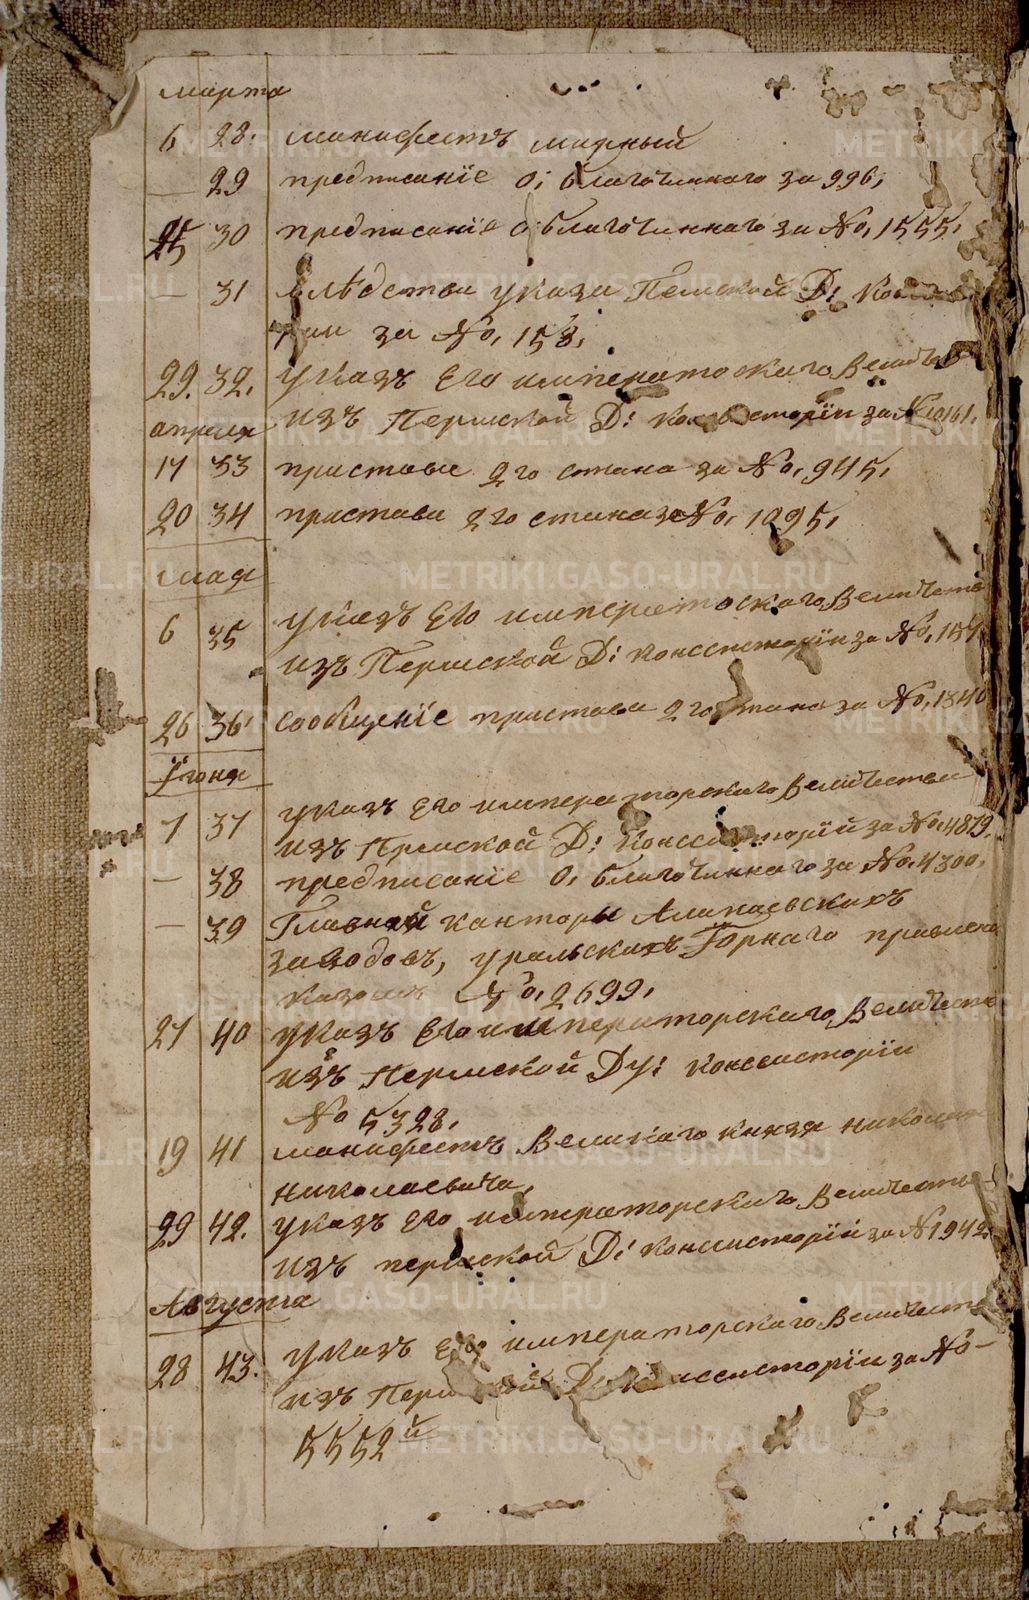 марта
6 28. манифестъ мирный
— 29 предписаніе О; благочиннаго за 996,
25 30 предписаніе О; благочиннаго за No, 1555,
— 31 вслѣдствіи указа Пермской Д:
за No, 158,
29. 32. указъ Его императоскаго Величества
апреля изъ Пермской Д: Консисторіи за No
17 33 пристава 2 го стана за No, 945,
20 34 пристава 2 го стана за No, 1095,
маія
6 35 указъ Его императоскаго Величества
изъ Пермской Д: Консисторіи за No, 157
26 36 сообщеніе пристава 2 го стана за No, 1340
Іюня
7 37 указъ Его императорскаго Величества
изъ Пермской Д: Консисторіи за No, 4879.
— 38 предписаніе О, благочиннаго за No, 4300,
— 39 Главной канторы Алапаевскихъ
заводовъ, уральскахъ Горнаго правленія
No, 2699,
27 40 указъ Его императорскаго Величества
изъ Пермской Ду: Консисторіи
No 5328,
19 41 манифестъ Великаго князя николая
николаевича,
29 42. указъ Его императорскаго Величества
изъ пермской Д: Консисторіи за N 1942
Августа
28 43. указъ Его императорскаго Величества
изъ Пермской Д: Консисторіи за No-
5552й
METRIKI.GASO-URAL.RU